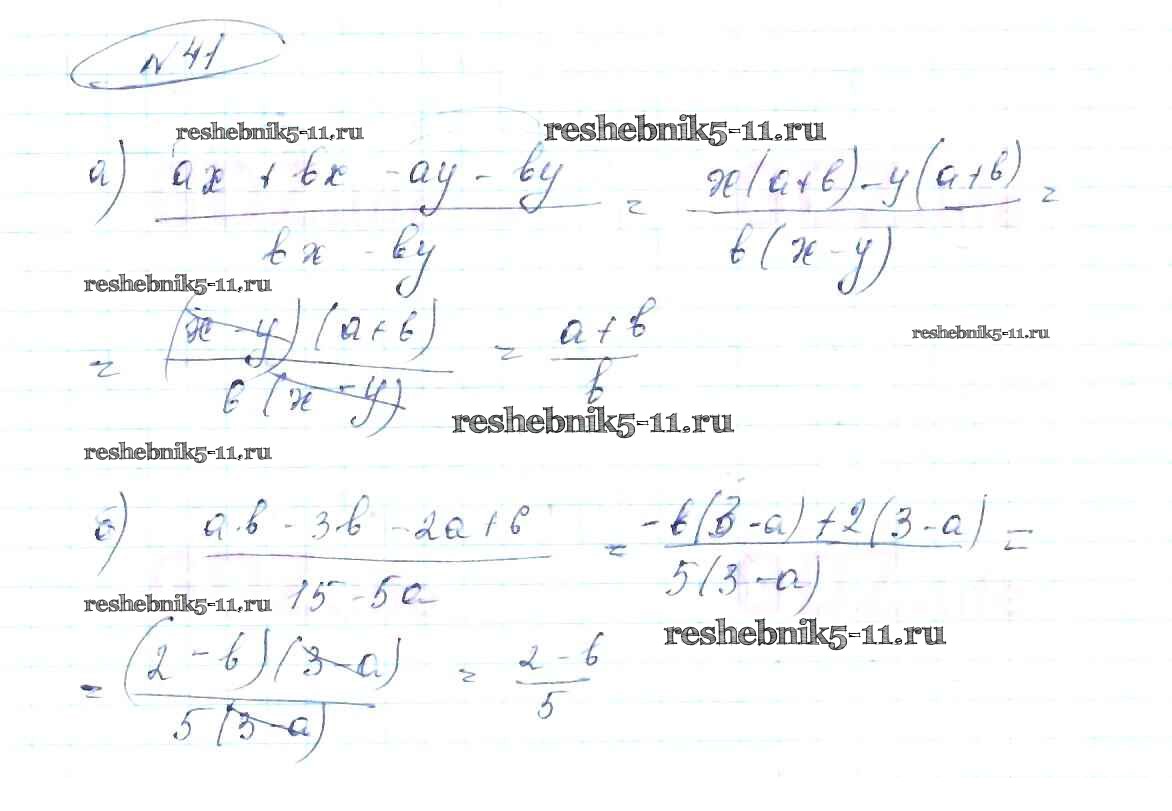 № 41
reshebnik5-11.ru reshebnik5-11.ru
а) (ax + bx - ay - by)/(bx - by) = (x(a+b) - y(a+b))/(b(x-y)) =
reshebnik5-11.ru
= ((x-y)(a+b))/(b(x-y)) = (a+b)/b
reshebnik5-11.ru
reshebnik5-11.ru
reshebnik5-11.ru
б) (ab - 3b - 2a + 6)/(15 - 5a) = (-b(3-a) + 2(3-a))/(5(3-a)) =
reshebnik5-11.ru
reshebnik5-11.ru
= ((2-b)(3-a))/(5(3-a)) = (2-b)/5